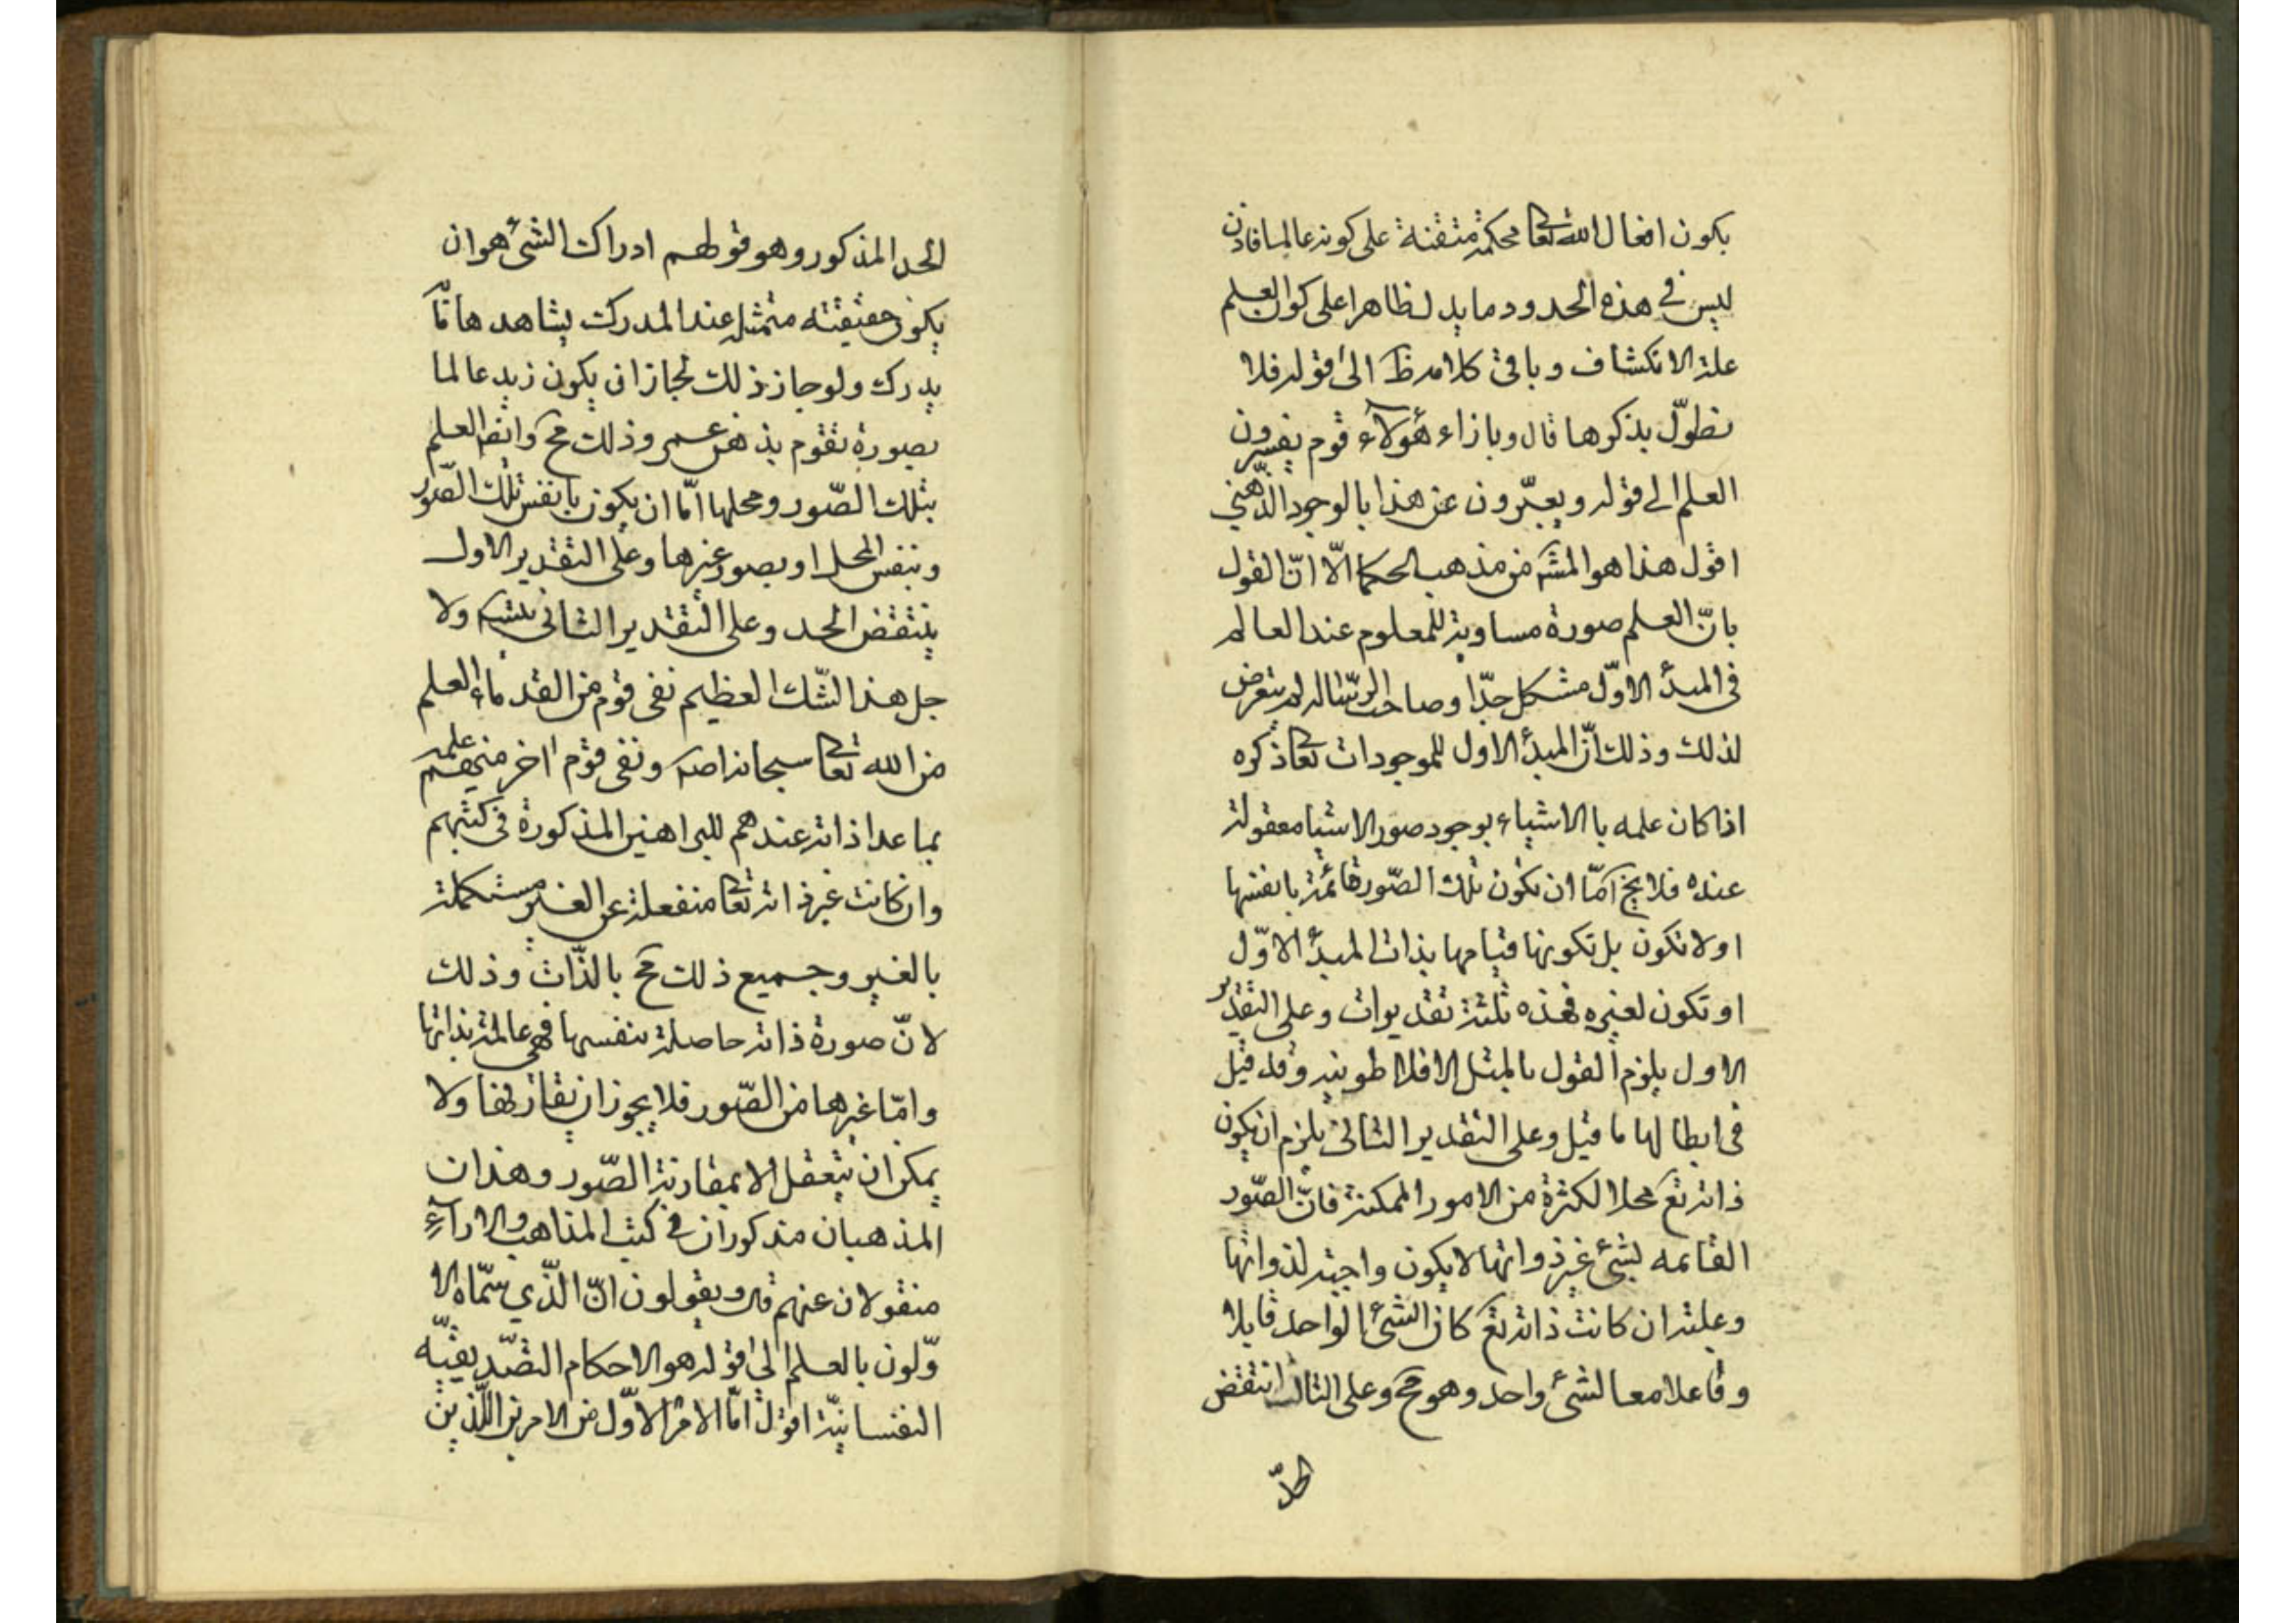 يكون افعال الله تعا محكمة متقنة على كونه عالما فاذن
ليس في هذه الحدود ما يدل ظاهرا على كون العلم
علة الانكشاف وباقى كلامه ظ الى قوله فلا
نطوّل بذكرها قال وبازاء هؤلاء قوم يفسرون
العلم الى قوله ويعبّرون عن هذا بالوجود الذّهني
اقول هذا هو المشه من مذهب الحكما الّا انّ القول
بانّ العلم صورة مساوية للمعلوم عند العالم
في المبدأ الاوّل مشكل جدّا وصاحب الرّسالة لم يتعرض
لذلك وذلك انّ المبدأ الاول للموجودات تعا ذكره
اذا كان علمه بالاشياء بوجود صور الاشيا معقولة
عنده فلا يخ امّا ان تكون تلك الصّور قائمة بانفسها
اولا تكون بل تكون قيامها بذات المبدأ الاوّل
او تكون لغيره فهذه ثلثة تقديرات وعلى التقدير
الاول يلزم القول بالمثل الافلاطونيه وقد قيل
في ابطالها ما قيل وعلى التقدير الثانى يلزم ان يكون
ذاته تع محلا لكثرة من الامور الممكنة فانّ الصّور
القائمه لشئ غير ذواتها لا يكون واجبة لذواتها
وعلتها ان كانت ذاته تع كان الشئ الواحد قابلا
وفاعلا معا لشئ واحد وهو مح وعلى الثالث انتقض
الحدّ
الحد المذكور وهو قولهم ادراك الشئ هو ان
يكون حقيقته متمثلة عند المدرك يشاهدها مّا
يدرك ولو جاز ذلك لجاز ان يكون زيد عالما
بصورة تقوم بذهن عمر وذلك مح وايضا العلم
بتلك الصّور ومحلها امّا ان يكون بانفس تلك الصّور
وبنفس المحل او بصور غيرها وعلى التقدير الاول
ينتقض الحد وعلى التقدير الثانى يتسلسل ولا
جل هذا الشّك العظيم نفى قوم من القدماء العلم
من الله تعا سبحانه اصلا ونفى قوم اخر منهم علمه
بما عدا ذاته عندهم للبراهين المذكورة في كتبهم
وان كانت غير ذاته تعا منفعلة عن الغير مستكملة
بالغير وجميع ذلك مح بالذّات وذلك
لانّ صورة ذاته حاصلة بنفسها فهي عالمة بذاتها
وامّا غيرها من الصّور فلا يجوز ان تقارنها ولا
يمكن ان يتعقل الا بمقارنة الصّور وهذان
المذهبان مذكوران في كتب المذاهب والاراء
منقولان عنهم قال ويقولون انّ الّذي سمّاه الا
وّلون بالعلم الى قوله هو الاحكام التّصديقيّه
النفسانيّة اقول امّا الامر الاوّل من الامرين اللّذين